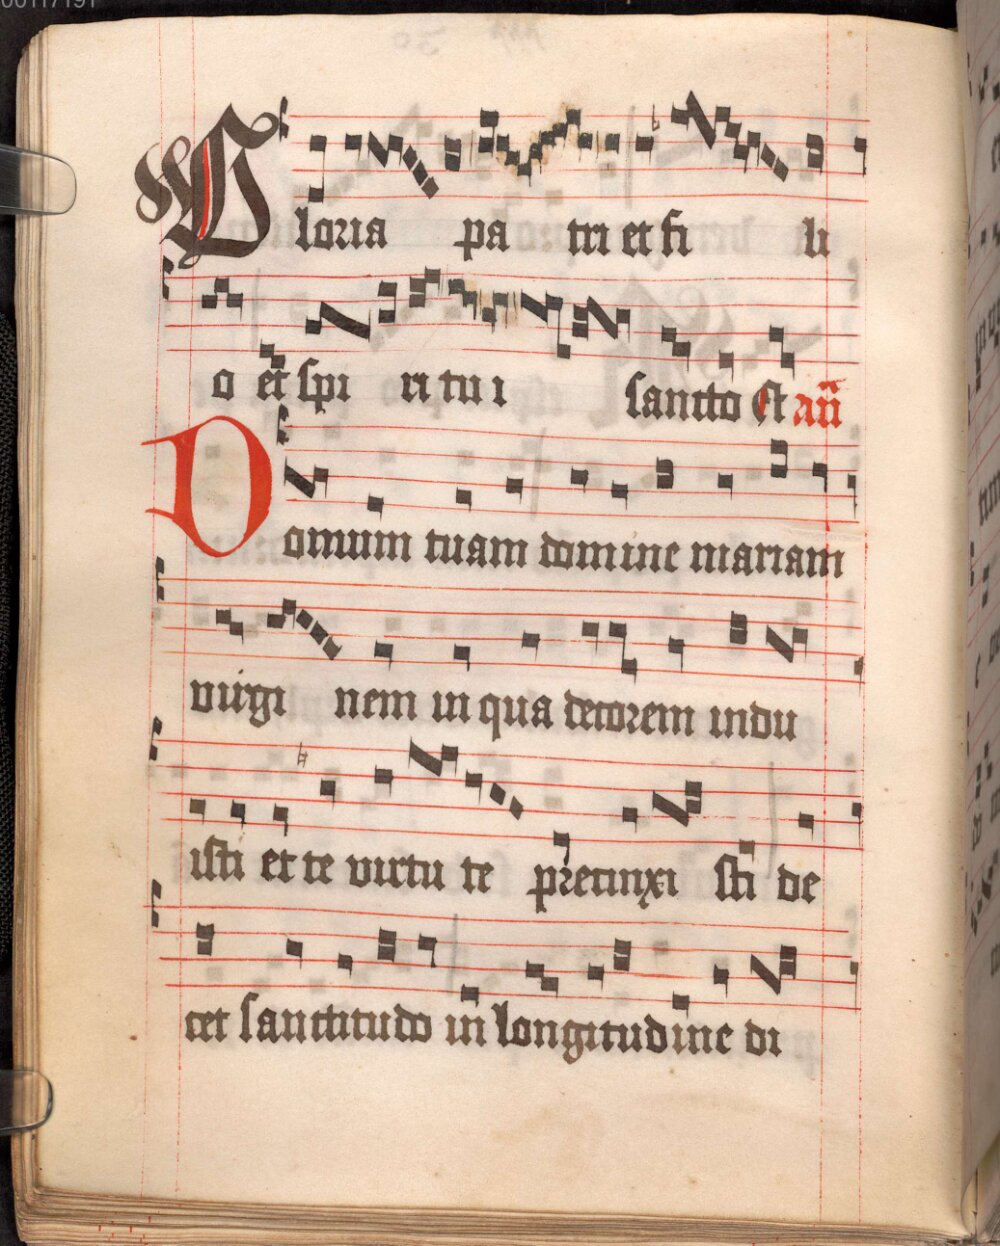 Gloria pa tri et fi li
o et spi ri tu i sancto St añ
Domum tuam domine mariam
virgi nem in qua decorem indu
isti et te virtu te precinxi sti de
cet sanctitudo in longitudine di